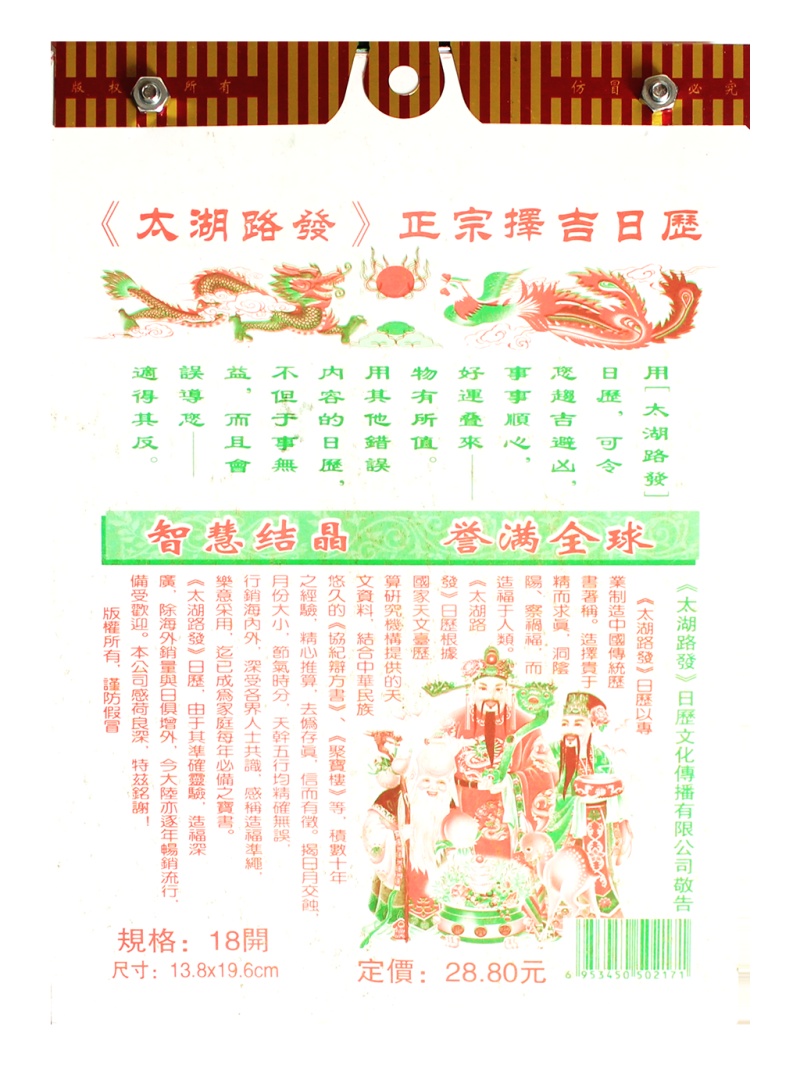 版权所有
仿冒必究
《太湖路發》正宗擇吉日歷
用[太湖路發]
日歷，可令
您趨吉避凶，
事事順心，
好運叠來——
物有所值。
用其他錯誤
内容的日歷，
不但于事無
益，而且會
誤導您——
適得其反。
智慧结晶 誉满全球
《太湖路發》日歷文化傳播有限公司敬告
《太湖路發》日歷以專
業制造中國傳統歷
書著稱。造擇貴于
精而求真，洞陰
陽、察禍福，而
造福于人類。
《太湖路
發》日歷根據
國家天文臺歷
算研究機構提供的天
文資料，結合中華民族
悠久的《協紀辯方書》、《聚寶樓》等，積數十年
之經驗，精心推算，去僞存眞，信而有徵。揭日月交蝕，
月份大小，節氣時分，天幹五行均精確無誤，
行銷海內外，深受各界人士共識，感稱造福準繩，
樂意采用，迄已成爲家庭每年必備之寶書。
《太湖路發》日歷，由于其準確靈驗，造福深
廣，除海外銷量與日俱增外，今大陸亦逐年暢銷流行，
備受歡迎。本公司感荷良深，特兹銘謝！
版權所有，謹防假冒
規格：18開
尺寸：13.8x19.6cm
定價：28.80元
6 953450 502171